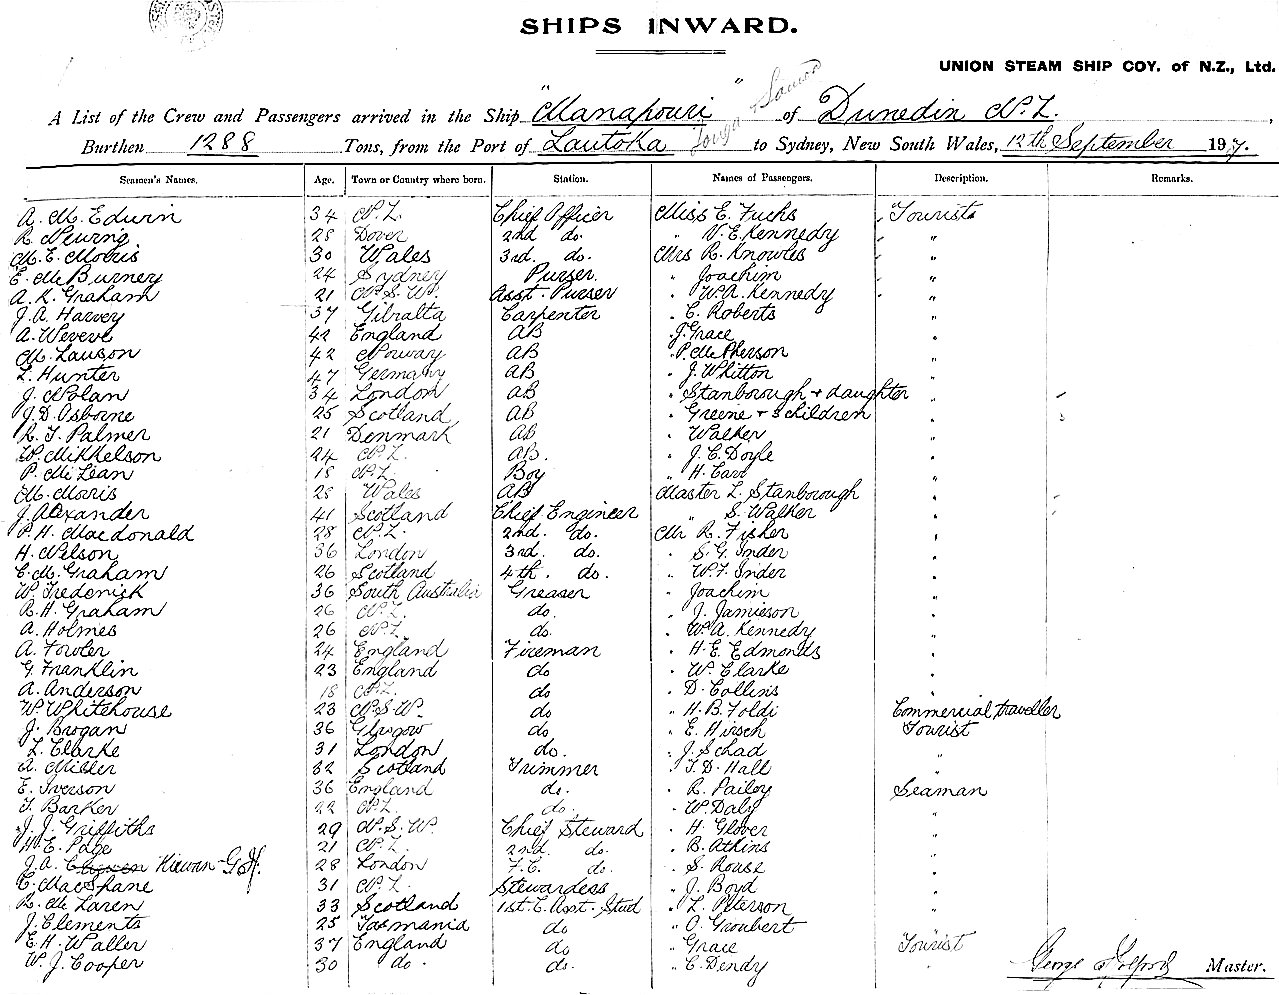 SHIPS INWARD.
UNION STEAM SHIP COY. of N.Z., Ltd.
A List of the Crew and Passengers arrived in the Ship "Manapouri" of Dunedin N.Z.,
Burthen 1288 Tons, from the Port of Lautoka Tonga & Samoa to Sydney, New South Wales, 12th September 1907.
Seamen's Names. Age. Town or Country where born. Station. Names of Passengers. Description. Remarks.
A. M. Edwin 34 N.Z. Chief Officer Miss E. Fuchs Tourist
R. 28 Dover 2nd do. " V. E. Kennedy "
M. E. Morris 30 Wales 3rd. do. Mrs R. Knowles "
E. McBurney 24 Sydney Purser " Joachim "
A. K. Graham 21 N.S.W. Asst. Purser " W. A. Kennedy "
J. A. Harvey 37 Gibralta Carpenter " C. Roberts "
A. 42 England AB " J. Grace "
M. Lauson 42 Norway AB " P. McPherson "
L. Hunter 47 Germany AB " J. Whitton "
J. Nolan 34 London AB " Stanborough + daughter "
J. D. Osborne 25 Scotland AB " Greene + 3 children "
R. J. Palmer 21 Denmark AB " Walker "
W. Mikkelson 24 N.Z. AB. " J. C. Doyle "
P. McLean 18 N.Z. Boy " H. "
M. Morris 28 Wales AB Master L. Stanborough "
J. Alexander 41 Scotland Chief Engineer " S. Walker "
P. H. Macdonald 28 N.Z. 2nd. do. Mr R. Fisher "
H. Nelson 36 London 3rd. do. " S. G. Inder "
C. M. Graham 26 Scotland 4th. do. " W. F. Inder "
W. Frederick 36 South Australia Greaser " Joachim "
R. H. Graham 26 N.Z. do. " J. Jamieson "
A. Holmes 26 N.Z. do. " W. A. Kennedy "
A. Fowler 24 England Fireman " H. E. Edmonds "
G. Franklin 23 England do " W. Clarke "
A. Anderson 18 N.Z. do " D. Collins "
W. Whitehouse 23 N.S.W. do " H. B. Foldi Commercial traveller
J. Brogan 36 Glasgow do " E. Hirsch Tourist
L. Clarke 31 London do. " J. Schad "
A. Miller 32 Scotland Trimmer " T. D. Hall "
E. Iverson 36 England do. " R. Pailey Seaman
T. Barker 22 N.Z. do. " W. Daly "
J. J. Griffiths 29 N.S.W. Chief Steward " H. Glover "
H. E. Page 21 N.Z. 2nd do. " B. Atkins "
J. A. Kirwan G.H. 28 London F.C. do. " S. Rouse "
C. MacShane 31 N.Z. Stewardess " J. Boyd "
R. McLaren 33 Scotland 1st. C. Asst. Stud " L. Peterson "
J. Clements 25 Tasmania do " O. Groubert "
E. H. Waller 37 England do " Grace Tourist
W. J. Cooper 30 do. do. " C. Dendy "
George Master.